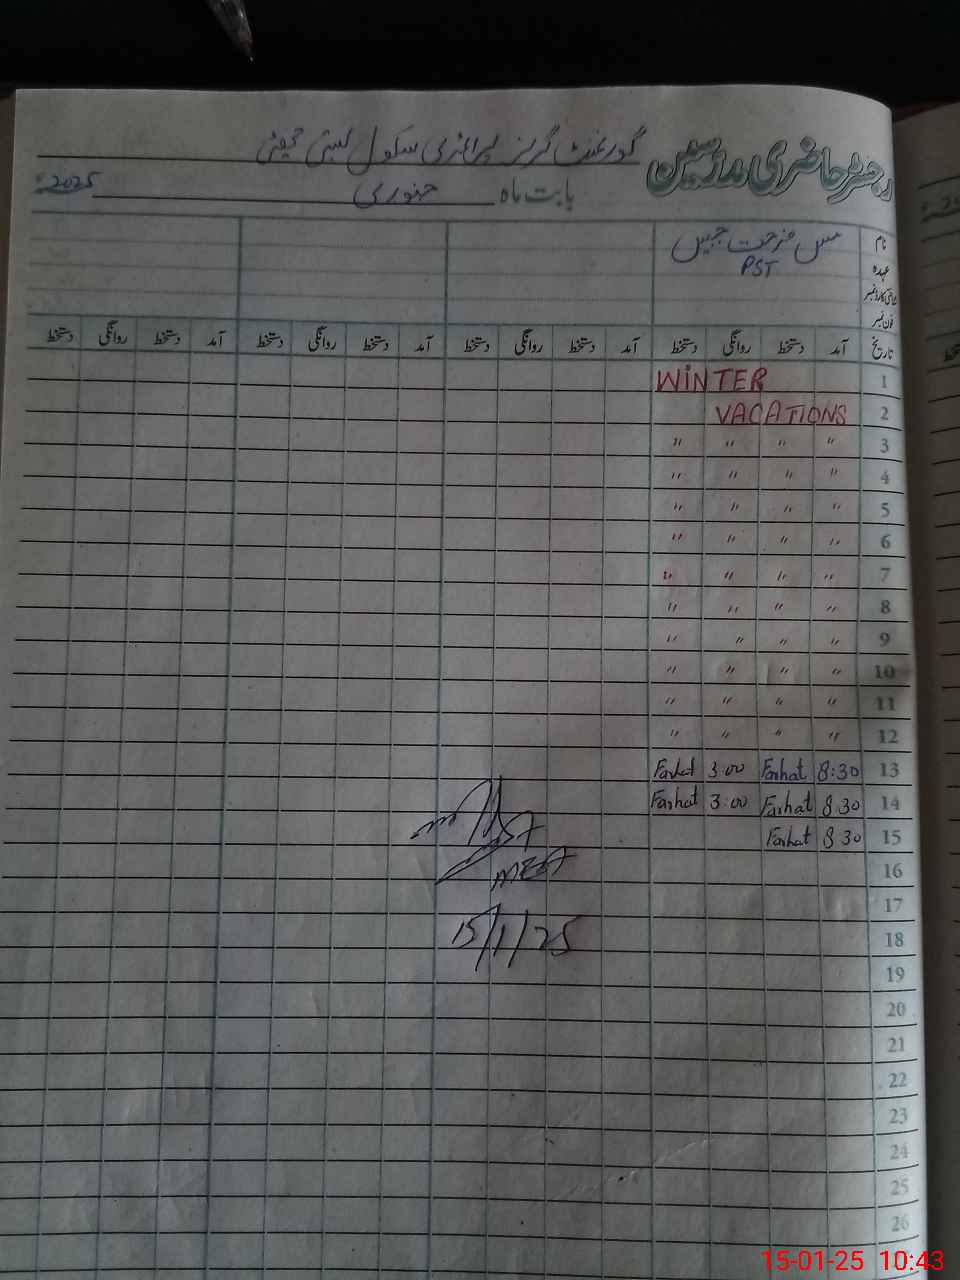 رجسٹر حاضری مدرسین گورنمنٹ گرلز پرائمری سکول بستی
بابت ماہ جنوری 2025ء
نام مس فرحت جبیں
عہدہ PST
شناختی کارڈ نمبر
فون نمبر
تاریخ آمد دستخط روانگی دستخط آمد دستخط روانگی دستخط آمد دستخط روانگی دستخط
1 WINTER
2 VACATIONS
3 " " " "
4 " " " "
5 " " " "
6 " " " "
7 " " " "
8 " " " "
9 " " " "
10 " " " "
11 " " " "
12 " " " "
13 8:30 Farhat 3:00 Farhat
14 8:30 Farhat 3:00 Farhat
15 8:30 Farhat
16
17
18
19
20
21
22
23
24
25
26
15/1/25
15-01-25 10:43